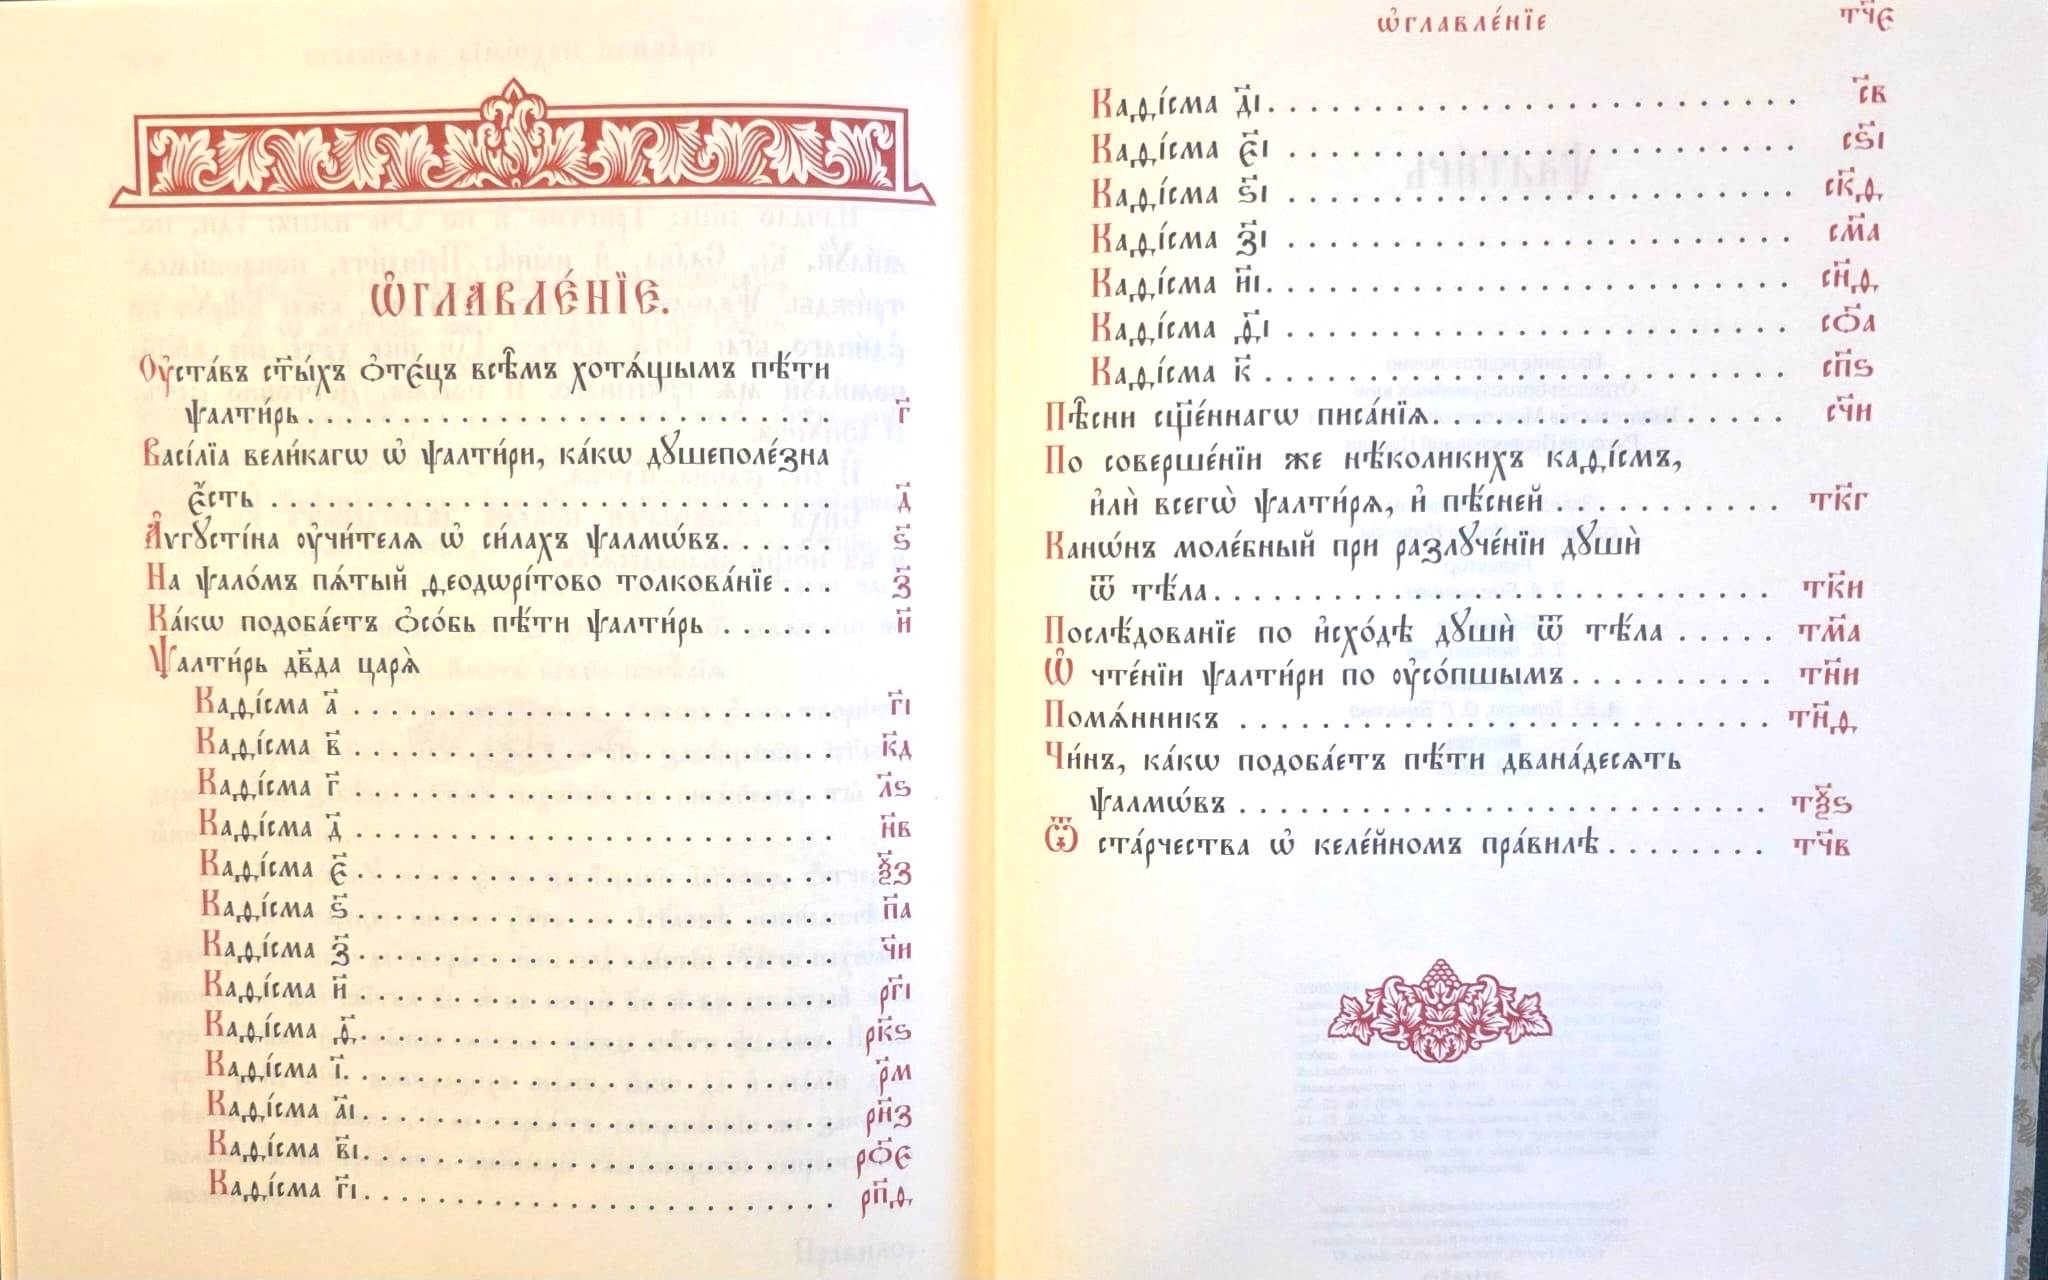 Ѡ҆главле́нїе.
Оу҆ста́въ ст҃ы́хъ ѻ҆тє́цъ всѣ̑мъ хотѧ́щымъ пѣ́ти
ѱалти́рь . . . г҃
Васі́лїа вели́кагѡ ѡ҆ ѱалти́ри, ка́кѡ дꙋшеполе́зна
є҆́сть . . . д҃
А҆ѵгꙋсті́на оу҆чи́телѧ ѡ҆ си́лахъ ѱалмѡ́въ . . . ѕ҃
На ѱало́мъ пѧ́тый ѳеодѡрі́тово толкова́нїе . . . з҃
Ка́кѡ подоба́етъ ѻ҆со́бь пѣ́ти ѱалти́рь . . . и҃
Ѱалти́рь дв҃да царѧ̀
Каѳі́сма а҃ . . . г҃і
Каѳі́сма в҃ . . . к҃д
Каѳі́сма г҃ . . . л҃ѕ
Каѳі́сма д҃ . . . н҃в
Каѳі́сма є҃ . . . ѯ҃з
Каѳі́сма ѕ҃ . . . п҃а
Каѳі́сма з҃ . . . ч҃и
Каѳі́сма и҃ . . . рг҃і
Каѳі́сма ѳ҃ . . . рк҃ѕ
Каѳі́сма і҃ . . . р҃м
Каѳі́сма а҃і . . . рн҃з
Каѳі́сма в҃і . . . ро҃є
Каѳі́сма г҃і . . . рп҃ѳ
ѡ҆главле́нїе тч҃є
Каѳі́сма д҃і . . . с҃в
Каѳі́сма є҃і . . . сѕ҃і
Каѳі́сма ѕ҃і . . . ск҃ѳ
Каѳі́сма з҃і . . . см҃а
Каѳі́сма и҃і . . . сн҃ѳ
Каѳі́сма ѳ҃і . . . со҃а
Каѳі́сма к҃ . . . сп҃ѕ
Пѣ̑сни сщ҃е́ннагѡ писа́нїѧ . . . сч҃и
По соверше́нїи же нѣ́коликихъ каѳі́смъ,
и҆лѝ всегѡ̀ ѱалти́рѧ, и҆ пѣ́сней . . . тк҃г
Канѡ́нъ моле́бный при разлꙋче́нїи дꙋшѝ
ѿ тѣ́ла . . . тк҃и
Послѣ́дованїе по и҆схо́дѣ дꙋшѝ ѿ тѣ́ла . . . тм҃а
Ѡ҆ чте́нїи ѱалти́ри по оу҆со́пшымъ . . . тн҃и
Помѧ́нникъ . . . тн҃ѳ
Чи́нъ, ка́кѡ подоба́етъ пѣ́ти двана́десѧть
ѱалмѡ́въ . . . тѯ҃ѕ
Ѿ ста́рчества ѡ҆ келе́йномъ пра́вилѣ . . . тч҃в